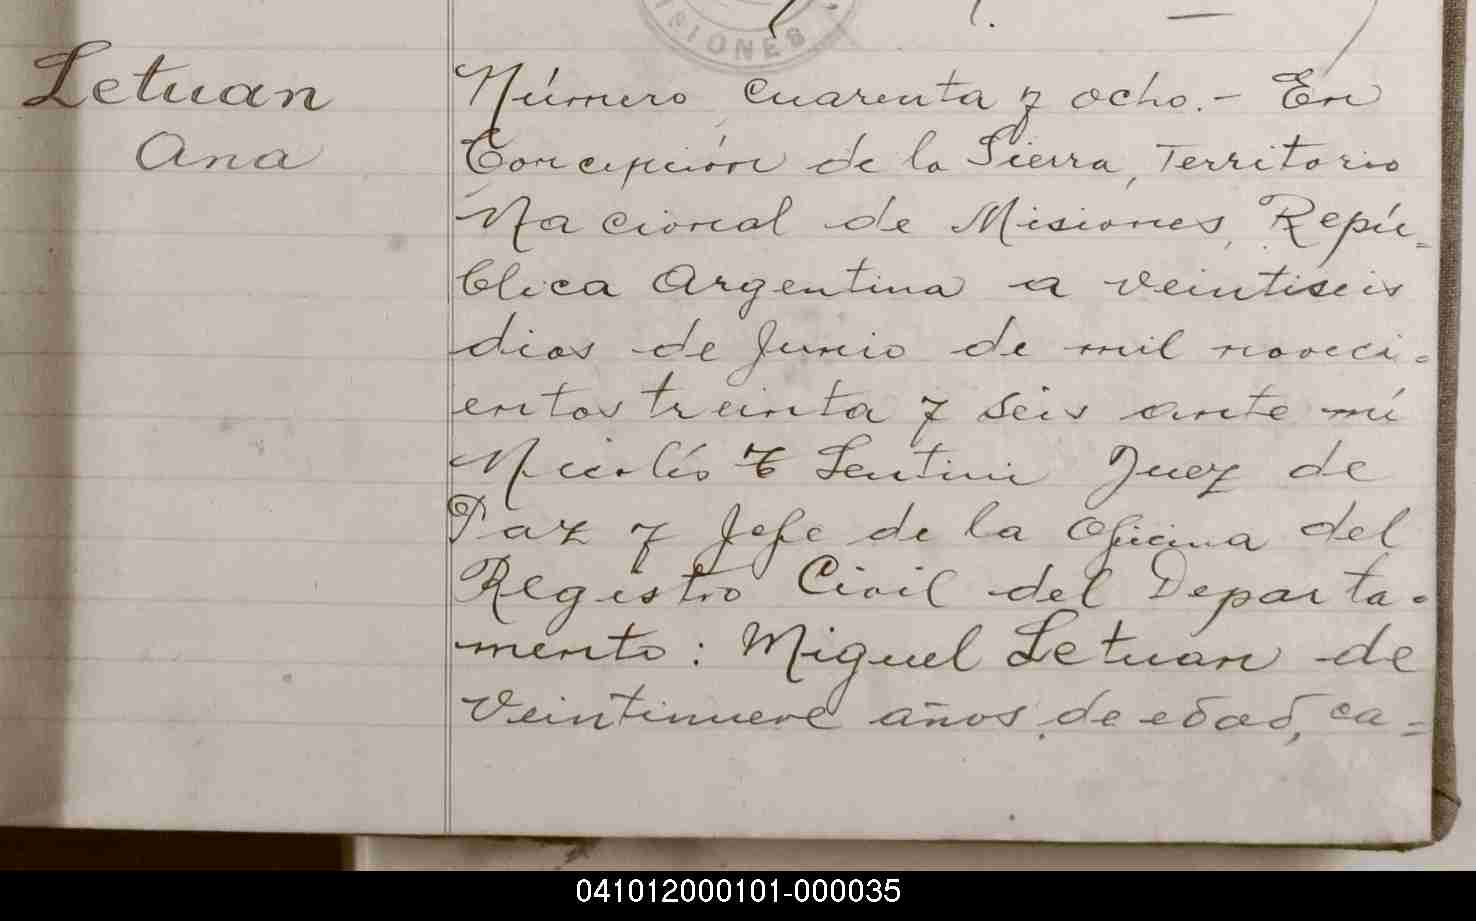 ISIONES
Letuan
Ana
Número cuarenta y ocho.- En
Concepción de la Sierra, Territorio
Nacional de Misiones, Repú=
blica Argentina a veintiseis
dias de Junio de mil noveci=
entos treinta y seis ante mi
Nicolás Sentini Juez de
Paz y Jefe de la Oficina del
Registro Civil del Departa=
mento: Miguel Letuan de
veintinueve años de edad, ca=
041012000101-000035